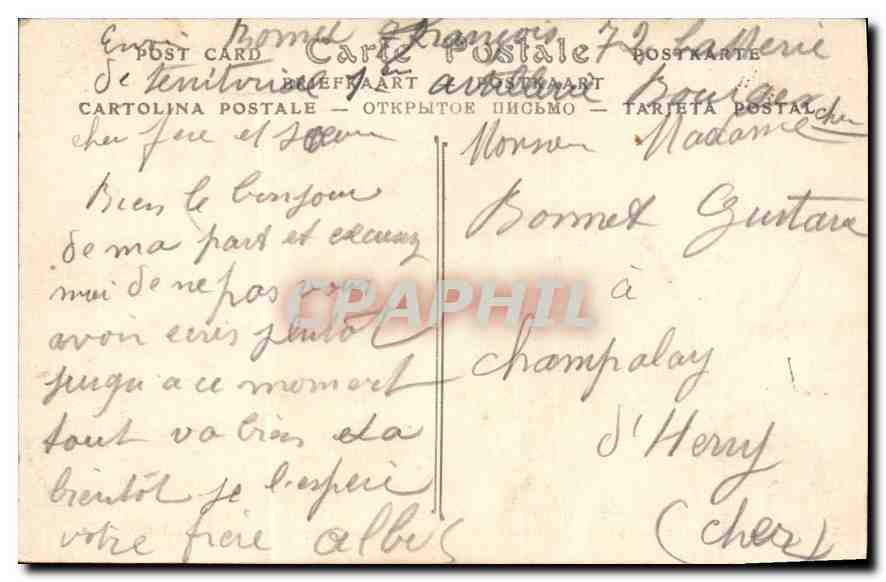 Envoi Bonnet François 72 batterie
POST CARD Carte Postale POSTKARTE
de territorial 1er artillerie Bourges
BRIEFKAART POSTKAART
CARTOLINA POSTALE — ОТКРЫТОЕ ПИСЬМО — TARJETA POSTAL
cher
cher frere et soeur
Bien le bonjour
de ma part et excusez
moi de ne pas vous
avoir ecris plutôt
jusqu a ce moment
tout va bien et a
bientôt je l'espere
votre frère
Monsieur Madame
Bonnet Gustave
à
Champalay
d'Herry
(cher)
CPAPHIL